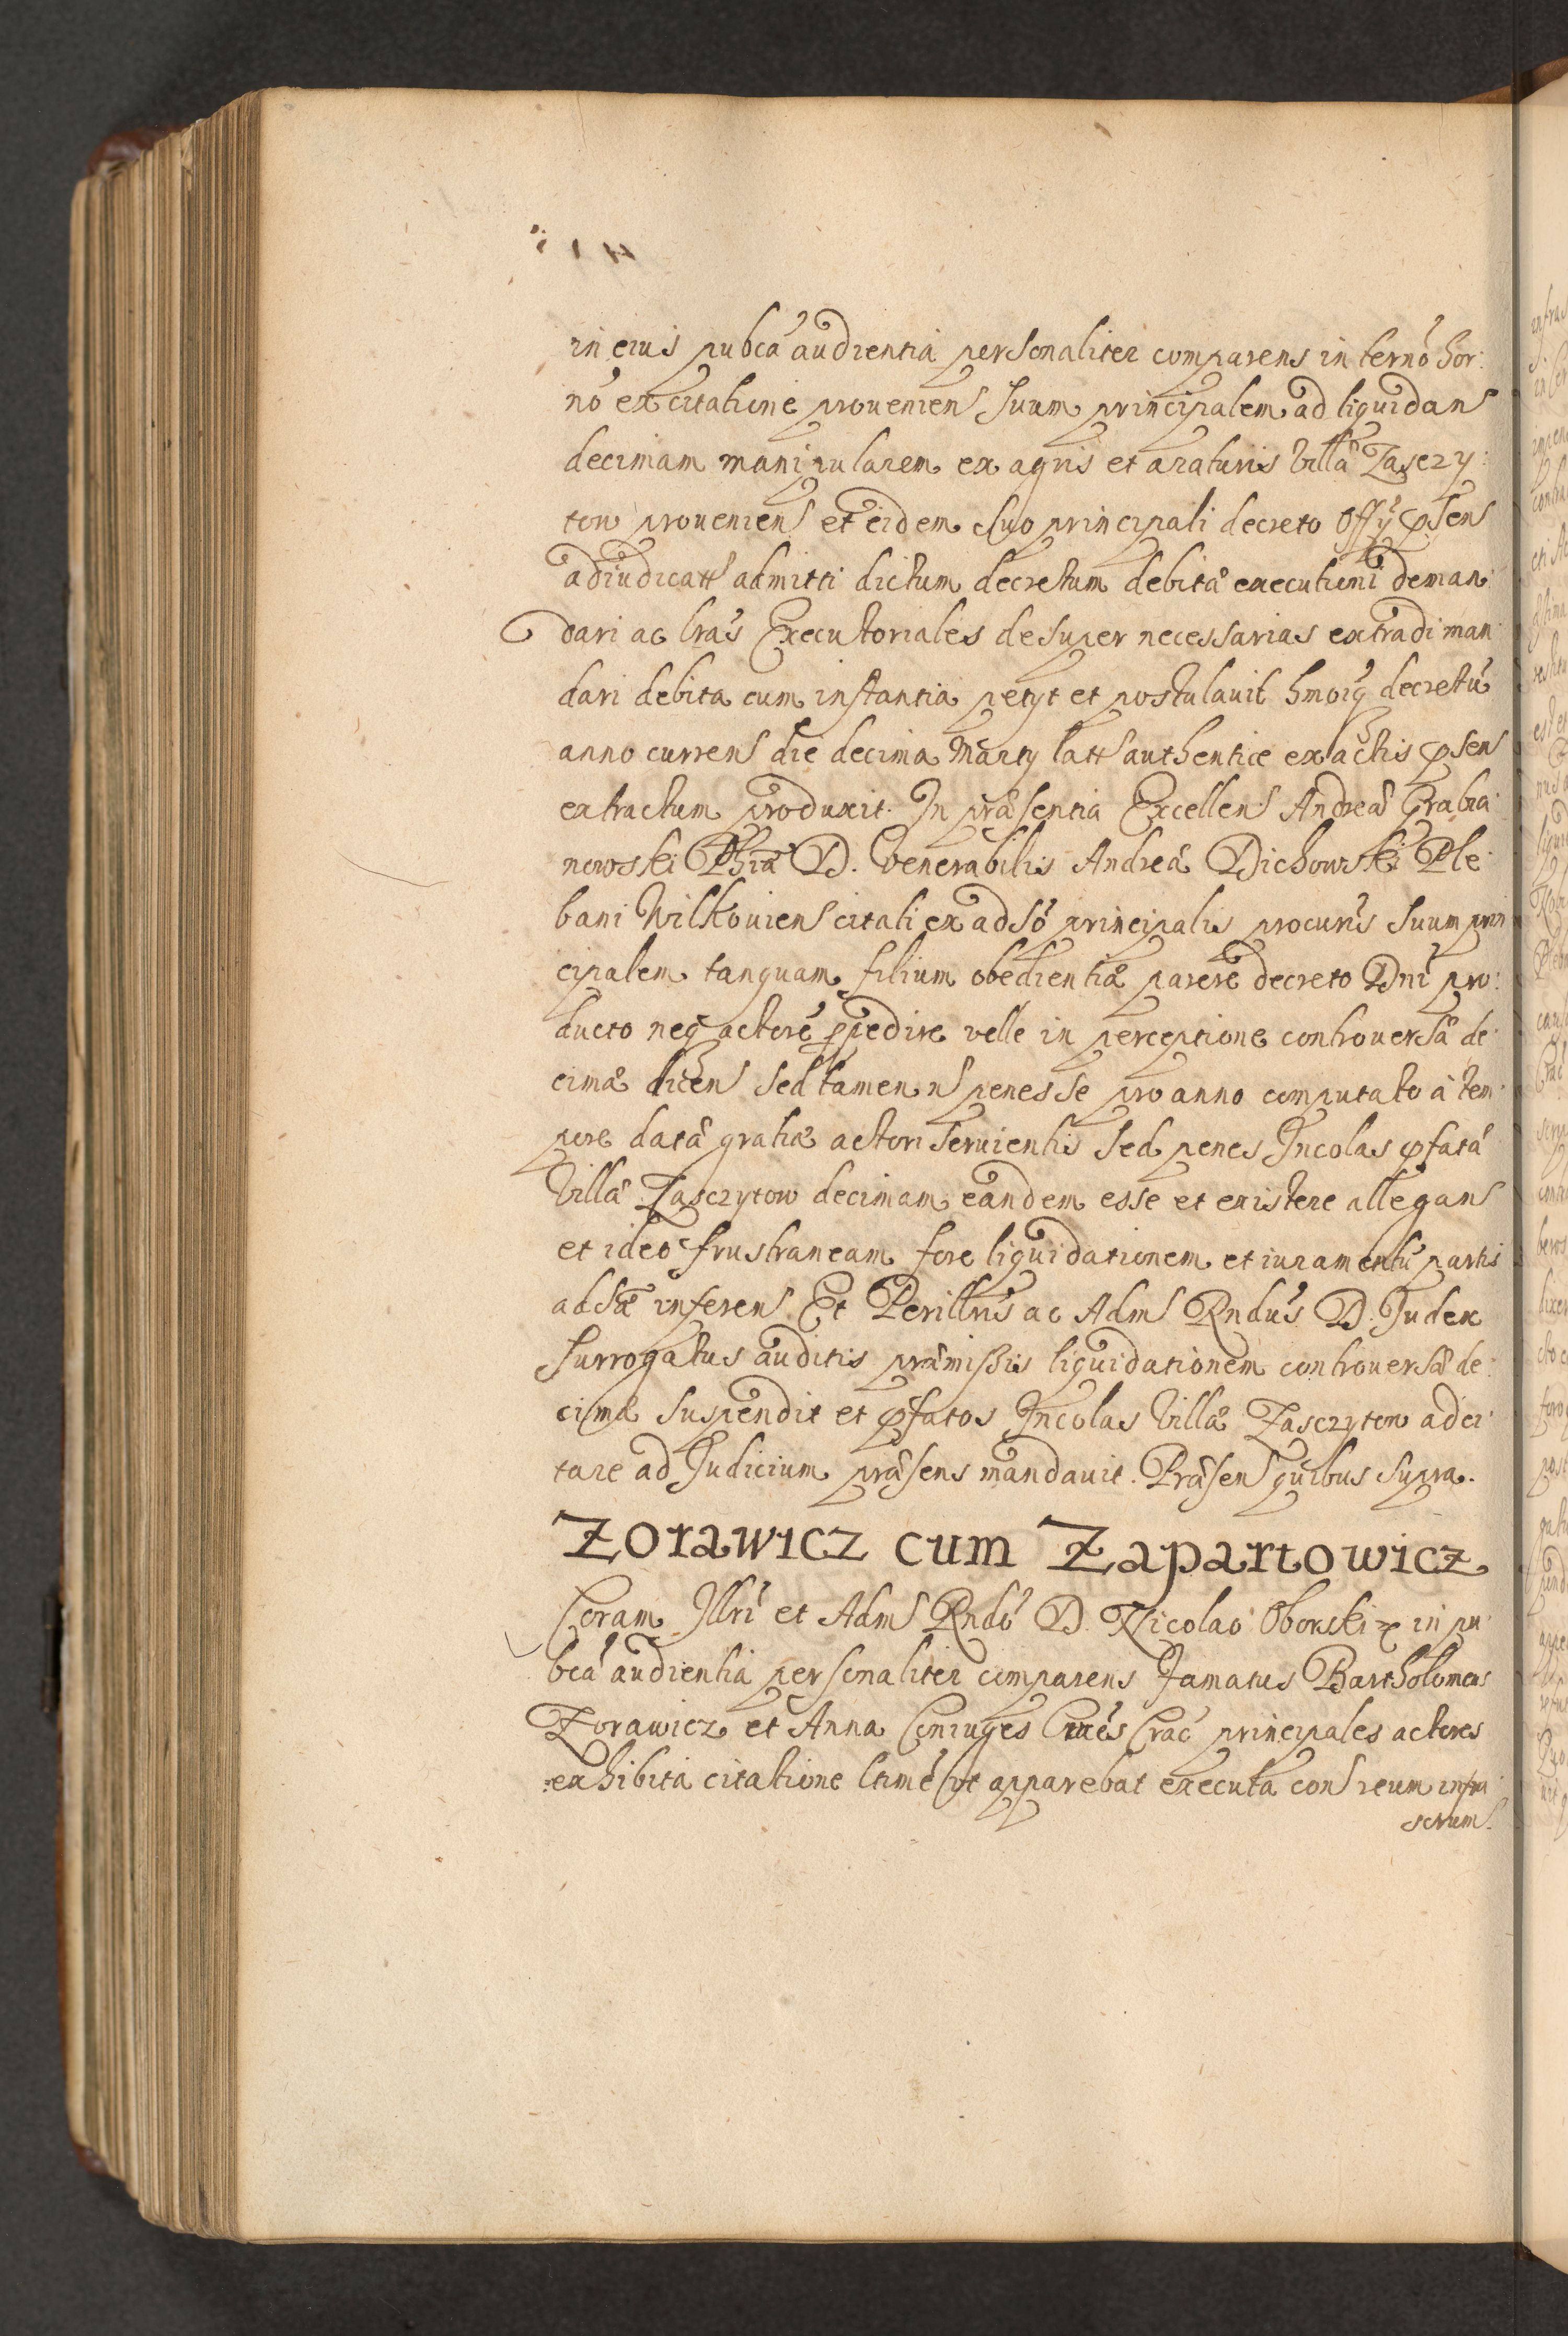 in eius pubcā audientia personaliter comparens in ternō hor:
nō ex citatione proueniens Suum principalem ad liquidans
decimam manipularem ex agris et araturis Villæ Zasczy:
tow proueniens et eidem Suo principali decreto Offÿ psens
adiudicatt admitti dictum decretum debitæ executioni deman:
dari ac lras Executoriales desuper necessarias extradi man:
dari debita cum instantia petyt et postulauit hmōiq decretū
anno currens die decima Marty latt authentice ex actis psens
extractum produxit. In præsentia Excellens Andreæ Grabia:
nowski Phiæ D. Venerabilis Andreæ Dichowski Ple:
bani Wilkouiens citati ex adso principalis procuris Suum prin
cipalem tanquam filium obedientiæ parere decreto Dni pro:
ducto neq actorē ppedire velle in perceptione controuersæ de:
cimæ dicens Sed tamen ns penes se pro anno computato à tem:
pore datæ gratiæ actori Seruientis Sed penes Incolas pfatæ
Villæ Zasczytow decimam eandem esse et existere allegans
et ideo frustraneam fore liquidationem et iuramentū partis
adsæ inferens Et Perillris ac Adms Rndus D. Iudex
Surrogatus auditis præmißis liquidationem controuersæ de:
cimæ Suspendit et pfatos Incolas Villæ Zasczytow adci:
tare ad Iudicium præsens mandauit. Præsens quibus Supra.
Zorawicz cum Zapartowicz
Coram Illri et Adms Rndo D. Nicolao Oborski &c in pu:
bcā audientia personaliter comparens Famatus Bartholomeus
Zorawicz et Anna Coniuges Ciues Crac principales actores
exhibita citatione ltime ut apparebat executa cons reum infra
scrum.